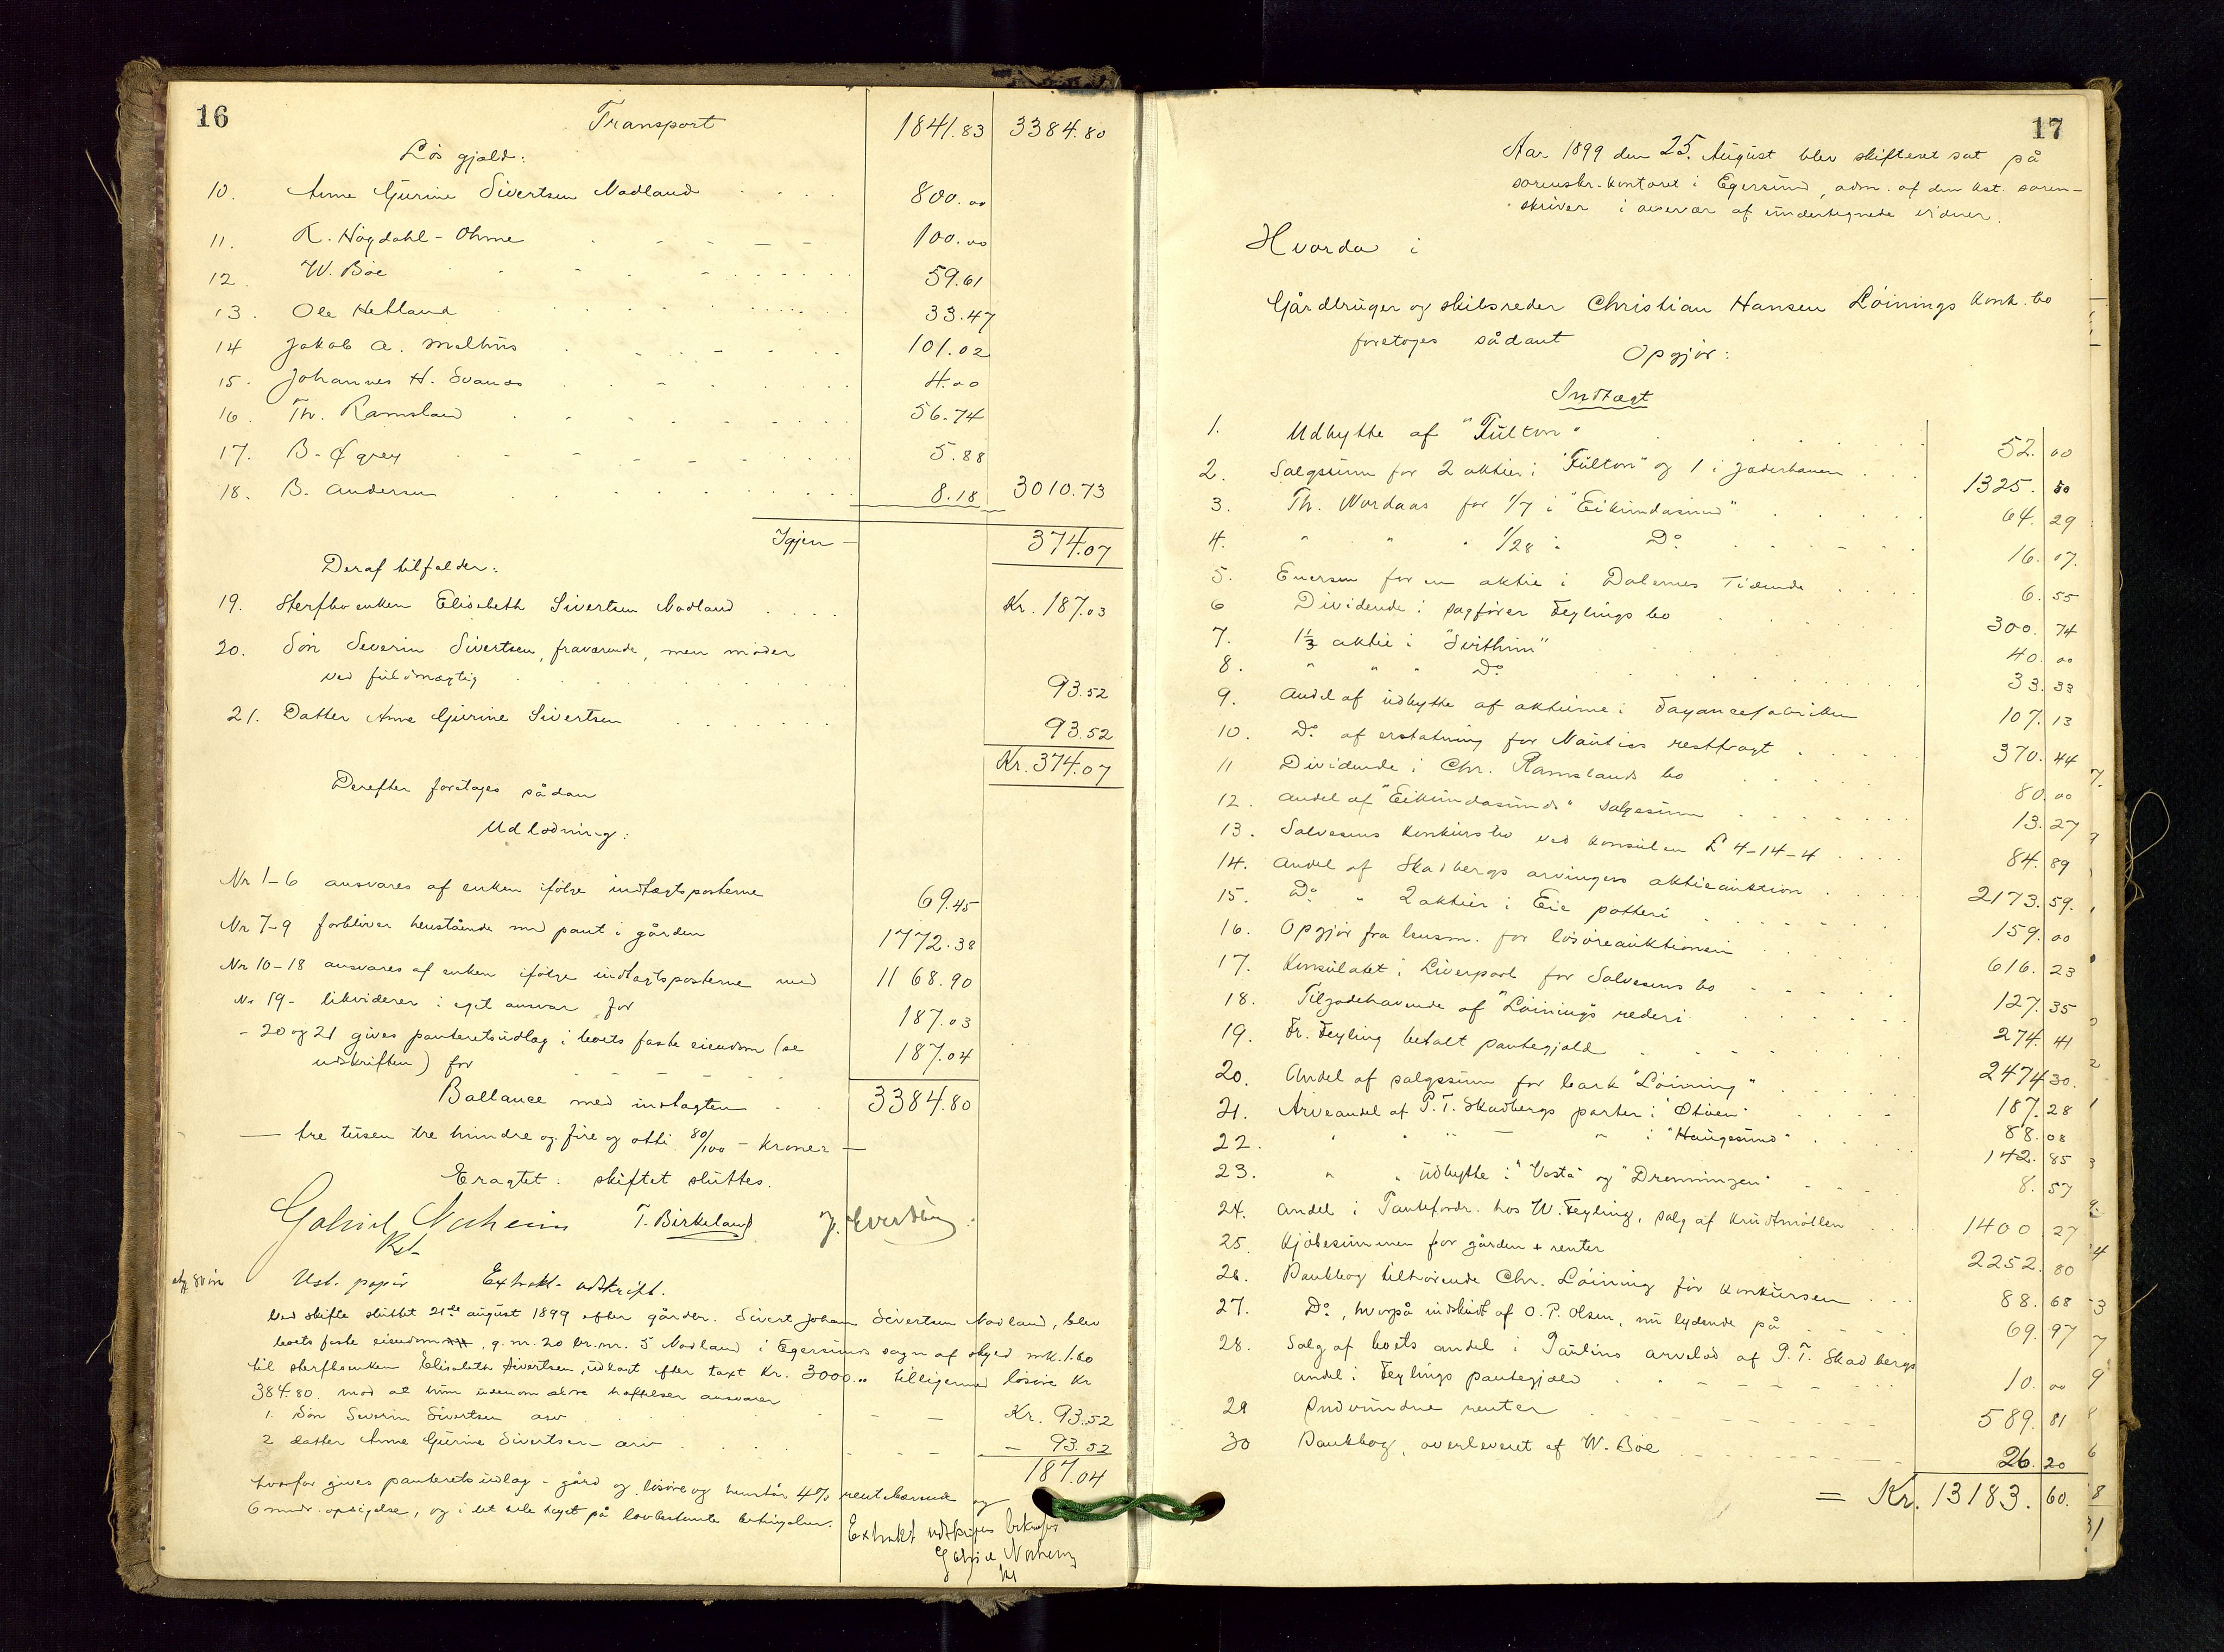 16
Transport 1841.83 3384.80
Løs gjæld:
10. Anne Gurine Sivertsen Nodland 800.00
11. R. Høgdahl-Ohme 100.00
12. W. Böe 59.61
13. Ole Hetland 33.47
14 Jakob A. Mælhus 101.02
15. Johannes H. Svanæs 4.00
16. Th. Ramsland 56.74
17. B. Øgrey 5.88
18. B. Andersen 8.18 3010.73
Igjen — 374.07
Deraf tilfalder:
19. Sterfboenken Elisabeth Sivertsen Nodland Kr. 187.03
20. Søn Severin Sivertsen, fraværende, men møder
ved fuldmægtig 93.52
21. Datter Anne Gurine Sivertsen 93.52
Kr. 374.07
Derefter foretages sådan
Udlodning:
Nr 1-6 ansvares af enken ifølge indtægtsposterne 69.45
Nr 7-9 forbliver henstående med pant i gården 1772.38
Nr 10-18 ansvares af enken ifølge indtægtsposterne med 1168.90
Nr 19- likviderer i eget ansvar for 187.03
- 20 og 21 gives panteretsudlæg i boets faste eiendom (se
udskriften) for 187.04
Ballance med indtægten 3384.80
— tre tusen tre hundre og fire og otti 80/100 - kroner —
Eragtet: skiftet sluttes.
Gabriel Norheim T. Birkeland J. Evertsen
Kst.
Ust. papir Extrakt-udskrift.
Ved skifte sluttet 21de august 1899 efter gårdbr. Sivert Johan Sivertsen Nodland, blev
boets faste eiendom, g.nr. 20 br.nr. 5 Nodland i Egersunds sogn af skyld mk. 1.60
til sterfboenken Elisabeth Sivertsen, udlagt efter taxt Kr. 3000.00 tilligemed løsøre Kr
384.80 mod at hun udenom disse hæftelser ansvarer
1. Søn Severin Sivertsen arv Kr. 93.52
2 datter Anne Gurine Sivertsen arv — 93.52
187.04
hvorfor gives panterets udlæg i gård og løsøre og henstår 4% rentebærende og
6 mndr. opsigelse, og i det hele taget på lovbestemte betingelser.
Extrakt udskriftens bekræftes
Gabriel Norheim
kst
17
Aar 1899 den 25. August blev skifteret sat på
sorenskr.-kontoret i Egersund, adm. af den kst. soren-
skriver i overvær af undertegnede vidner.
Hvorda i
Gårdbruger og skibsreder Christian Hansen Löinings konk. bo
foretages sådant
Opgjør:
Indtægt
1. Udbytte af "Fulton" 52.00
2. Salgssum for 2 aktier i "Fulton" og 1 i Jæderhavn 1325.50
3. Th. Nordaas for 1/7 i "Eikundasund" 64.29
4. " " " 1/28 i Do 16.07.
5. Enersen for en aktie i Dalernes Tidende 6.55
6 Dividende i sagfører Feylings bo 300.74
7. 1 1/3 aktie i "Svithun" 40.00
8. " " " Do 33.33
9. Andel af udbytte af aktierne i Fayancefabriken 107.13
10. Do af erstatning for Nautics restfragt 370.44
11 Dividende i Chr. Ramslands bo 80.00
12. Andel af "Eikundasunds" salgssum 13.27
13. Salvesens konkursbo ved konsulen £ 4-14-4 84.89
14. Andel af Skadbergs arvingers aktieauktion 2173.59.
15. Do " 2 aktier i Eie potteri 159.00
16. Opgjør fra lensm. for løsøreauktionen 616.23
17. Konsulatet i Liverpool for Salvesens bo 127.35
18. Tilgodehavende af "Löinings" rederi 274.41
19. Fr. Feyling betalt pantegjæld 2474 30.
20. Andel af salgssum for bark "Löining" 187.28
21. Arveandel af P. T. Skadbergs parter i "Otteren" 88.08
22. " " " — " i "Haugesund" 142.85
23. " " udbytte i "Vesta" og "Dronningen" 8.57
24. Andel i Pantefordr. hos W. Feyling, salg af Krudtmøllen 1400.27
25. Kjøbesummen for gården + renter 2252.80
26. Bankbog tilhørende Chr. Löining før konkursen 88.68
27. Do, hvorpå indskudt af O. P. Olsen, nu lydende på 69.97
28. Salg af boets andel i Paulins arvelod af P. T. Skadbergs
andel i Feylings pantegjæld 10.00
29 Indvundne renter 589.81
30 Bankbog, overleveret af W. Böe 26.20
= Kr. 13183.60.